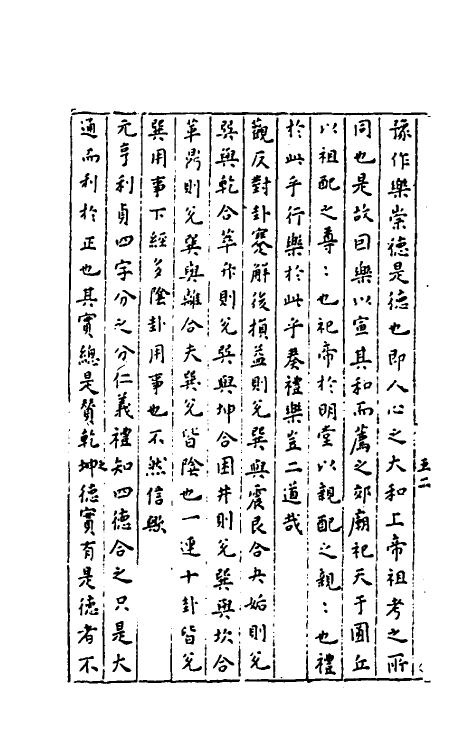 豫作樂崇德是德也即人心之大和上帝祖考之所
同也是故曰樂以宣其和而薦之郊廟祀天于圜丘
以祖配之尊：也祀帝於明堂以親配之親：也禮
於此乎行樂於此乎奏禮樂豈二道哉
觀反對卦蹇解後損益則兌巽與震艮合夬姤則兌
巽與乾合萃升則兌巽與坤合困井則兌巽與坎合
革鼎則兌巽與離合夫巽兌皆陰也一連十卦皆兌
巽用事下經多陰卦用事也不然信歟
元亨利貞四字分之分仁義禮知四德合之只是大
通而利於正也其實總是贊乾坤之德實有是德者不